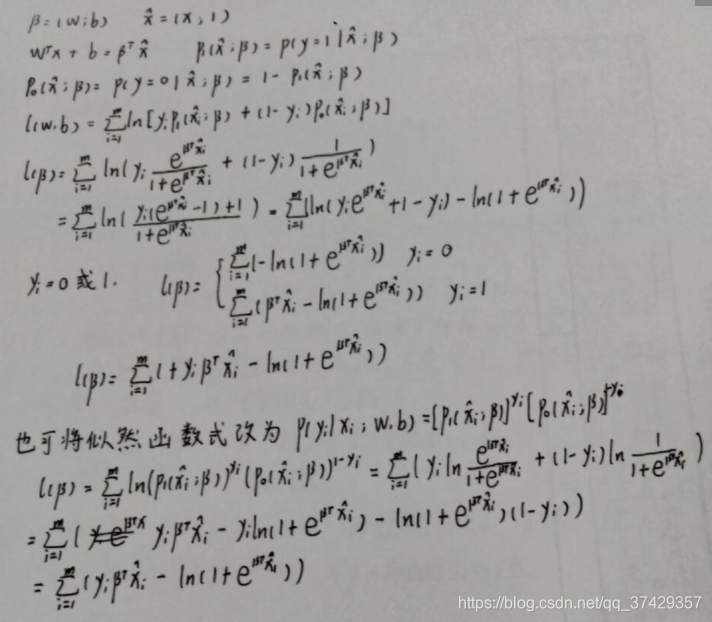 β=(w;b) x̂=(x,1)
wᵀx + b = βᵀx̂ p₁(x̂;β) = p(y=1|x̂;β)
p₀(x̂;β) = p(y=0|x̂;β) = 1 - p₁(x̂;β)
l(w.b) = ∑_{i=1}^{m} ln[y_i p₁(x̂_i;β) + (1-y_i) p₀(x̂_i;β)]
l(β) = ∑_{i=1}^{m} ln(y_i \frac{e^{βᵀx̂_i}}{1+e^{βᵀx̂_i}} + (1-y_i) \frac{1}{1+e^{βᵀx̂_i}})
= ∑_{i=1}^{m} ln(\frac{y_i(e^{βᵀx̂_i}-1)+1}{1+e^{βᵀx̂_i}}) = ∑_{i=1}^{m}(ln(y_i e^{βᵀx̂_i}+1-y_i) - ln(1+e^{βᵀx̂_i}))
y_i=0 或 1. l(β)= { ∑_{i=1}^{m}(-ln(1+e^{βᵀx̂_i})) y_i=0
∑_{i=1}^{m}(βᵀx̂_i - ln(1+e^{βᵀx̂_i})) y_i=1
l(β)= ∑_{i=1}^{m}(+y_i βᵀx̂_i - ln(1+e^{βᵀx̂_i}))
也可将似然函数式改为 p(y_i|x_i;w.b) = [p₁(x̂_i;β)]^{y_i} [p₀(x̂_i;β)]^{1-y_i}
l(β) = ∑_{i=1}^{m} ln(p₁(x̂_i;β))^{y_i} (p₀(x̂_i;β))^{1-y_i} = ∑_{i=1}^{m}(y_i ln \frac{e^{βᵀx̂_i}}{1+e^{βᵀx̂_i}} + (1-y_i) ln \frac{1}{1+e^{βᵀx̂_i}})
= ∑_{i=1}^{m}(y_i βᵀx̂_i - y_i ln(1+e^{βᵀx̂_i}) - ln(1+e^{βᵀx̂_i})(1-y_i))
= ∑_{i=1}^{m}(y_i βᵀx̂_i - ln(1+e^{βᵀx̂_i}))
https://blog.csdn.net/qq_37429357